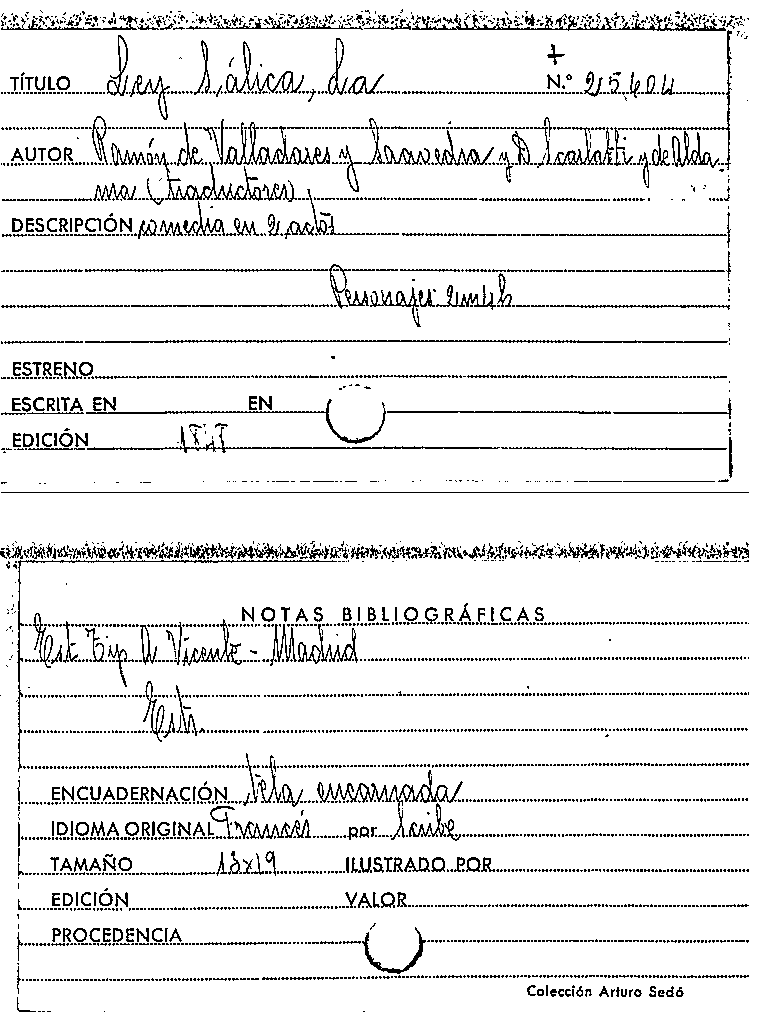 TÍTULO Ley Sálica, La
+
N.º 215,404
AUTOR Ramón de Valladares y Saavedra y D. Scarlatti y de Alda-
ma (traductores)
DESCRIPCIÓN comedia en 2 actos
Personajes 2m4h
ESTRENO
ESCRITA EN EN
EDICIÓN
NOTAS BIBLIOGRÁFICAS
Est Tip A Vicente - Madrid
Estr.
ENCUADERNACIÓN tela encarnada
IDIOMA ORIGINAL Francés por Scribe
TAMAÑO 13x19 ILUSTRADO POR
EDICIÓN VALOR
PROCEDENCIA
Colección Arturo Sedó